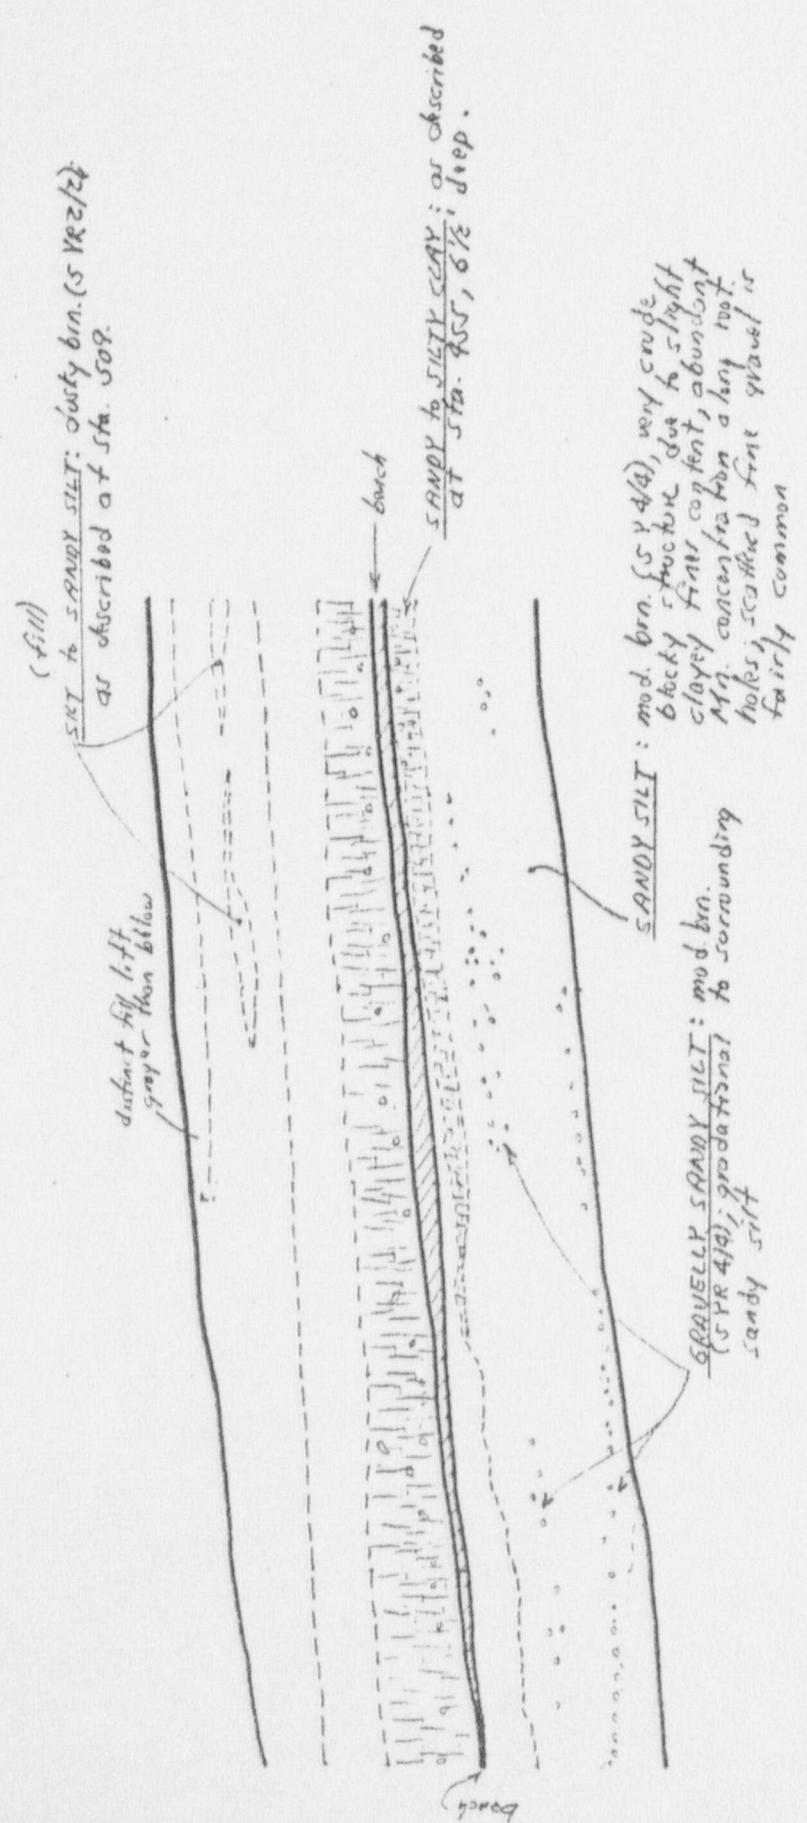 (fill)
SILT to SANDY SILT: dusky brn. (5 YR 2/2);
as described at sta. 509.
distinct fill lift
grayer than below
bench
SANDY to SILTY CLAY: as described
at sta. 455, 6½' deep.
SANDY SILT: mod. brn. (5 Y 4/4), very crude
blocky structure due to slight
clayey fines content, abundant
Mn. concentration along root
holes; scattered fine gravel is
fairly common
GRAVELLY SANDY SILT: mod. brn.
(5 YR 4/4); gradational to surrounding
sandy silt
bench